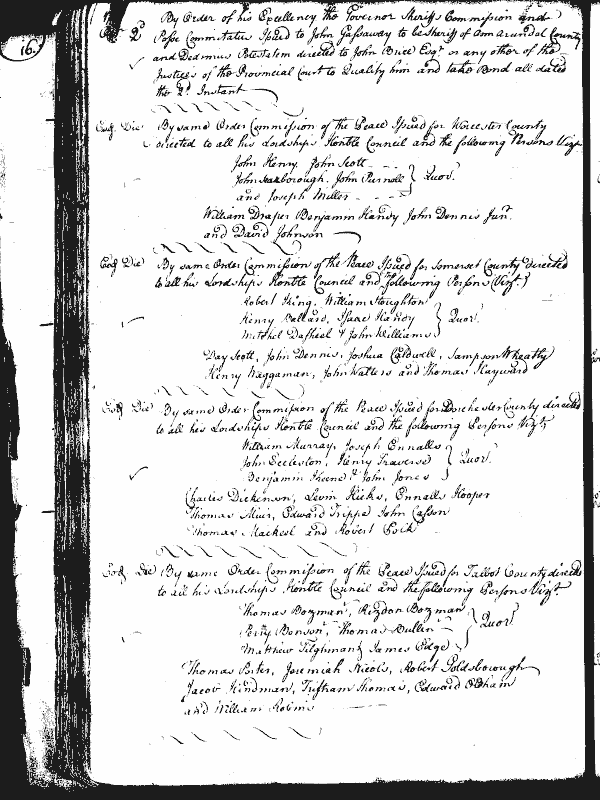 16.
By Order of his Excellency the Governor Sheriffs Commission and
2d Posse Commitatus Issued to John Gassaway to be Sheriff of Ann Arundel County
and Dedimus Potestatem directed to John Brice Esqr or any other of the
Justices of the Provincial Court to Qualify him and take Bond all dated
the 2d Instant
Eod Die By same Order Commission of the Peace Issued for Worcester County
directed to all his Lordships Honble Council and the following Persons Vizt
John Henry, John Scott
John Scarborough, John Purnell Quor
and Joseph Miller
William Draper Benjamin Handy John Dennis Junr
and David Johnson
Eod Die By same Order Commission of the Peace Issued for Somerset County directed
to all his Lordships Honble Council and following Persons (Vizt)
Robert King, William Stoughton
Henry Ballard, Isaac Handy Quor
Mitchel Dasheel & John Williams
Day Scott, John Dennis, Joshua Caldwell, Sampson Wheatly
Henry Waggaman, John Watters and Thomas Hayward
Eod Die By same Order Commission of the Peace Issued for Dorchester County directed
to all his Lordships Honble Council and the following Persons Vizt
William Murray, Joseph Ennalls
John Eccleston, Henry Traverse Quor
Benjamin Keene & John Jones
Charles Dickenson, Levin Hicks, Ennalls Hooper
Thomas Muir, Edward Trippe John Casson
Thomas Mackeel and Robert
Eod Die By same Order Commission of the Peace Issued for Talbot County directed
to all his Lordships Honble Council and the following Persons Vizt
Thomas Bozman, Rizdon Bozman
Perry Benson, Thomas Bullen Quor
Matthew Tilghman & James Edge
Thomas Porter, Jeremiah Nicols, Robert Goldsborough
Jacob Hindman, Tristram Thomas, Edward Oldham
and William Robins